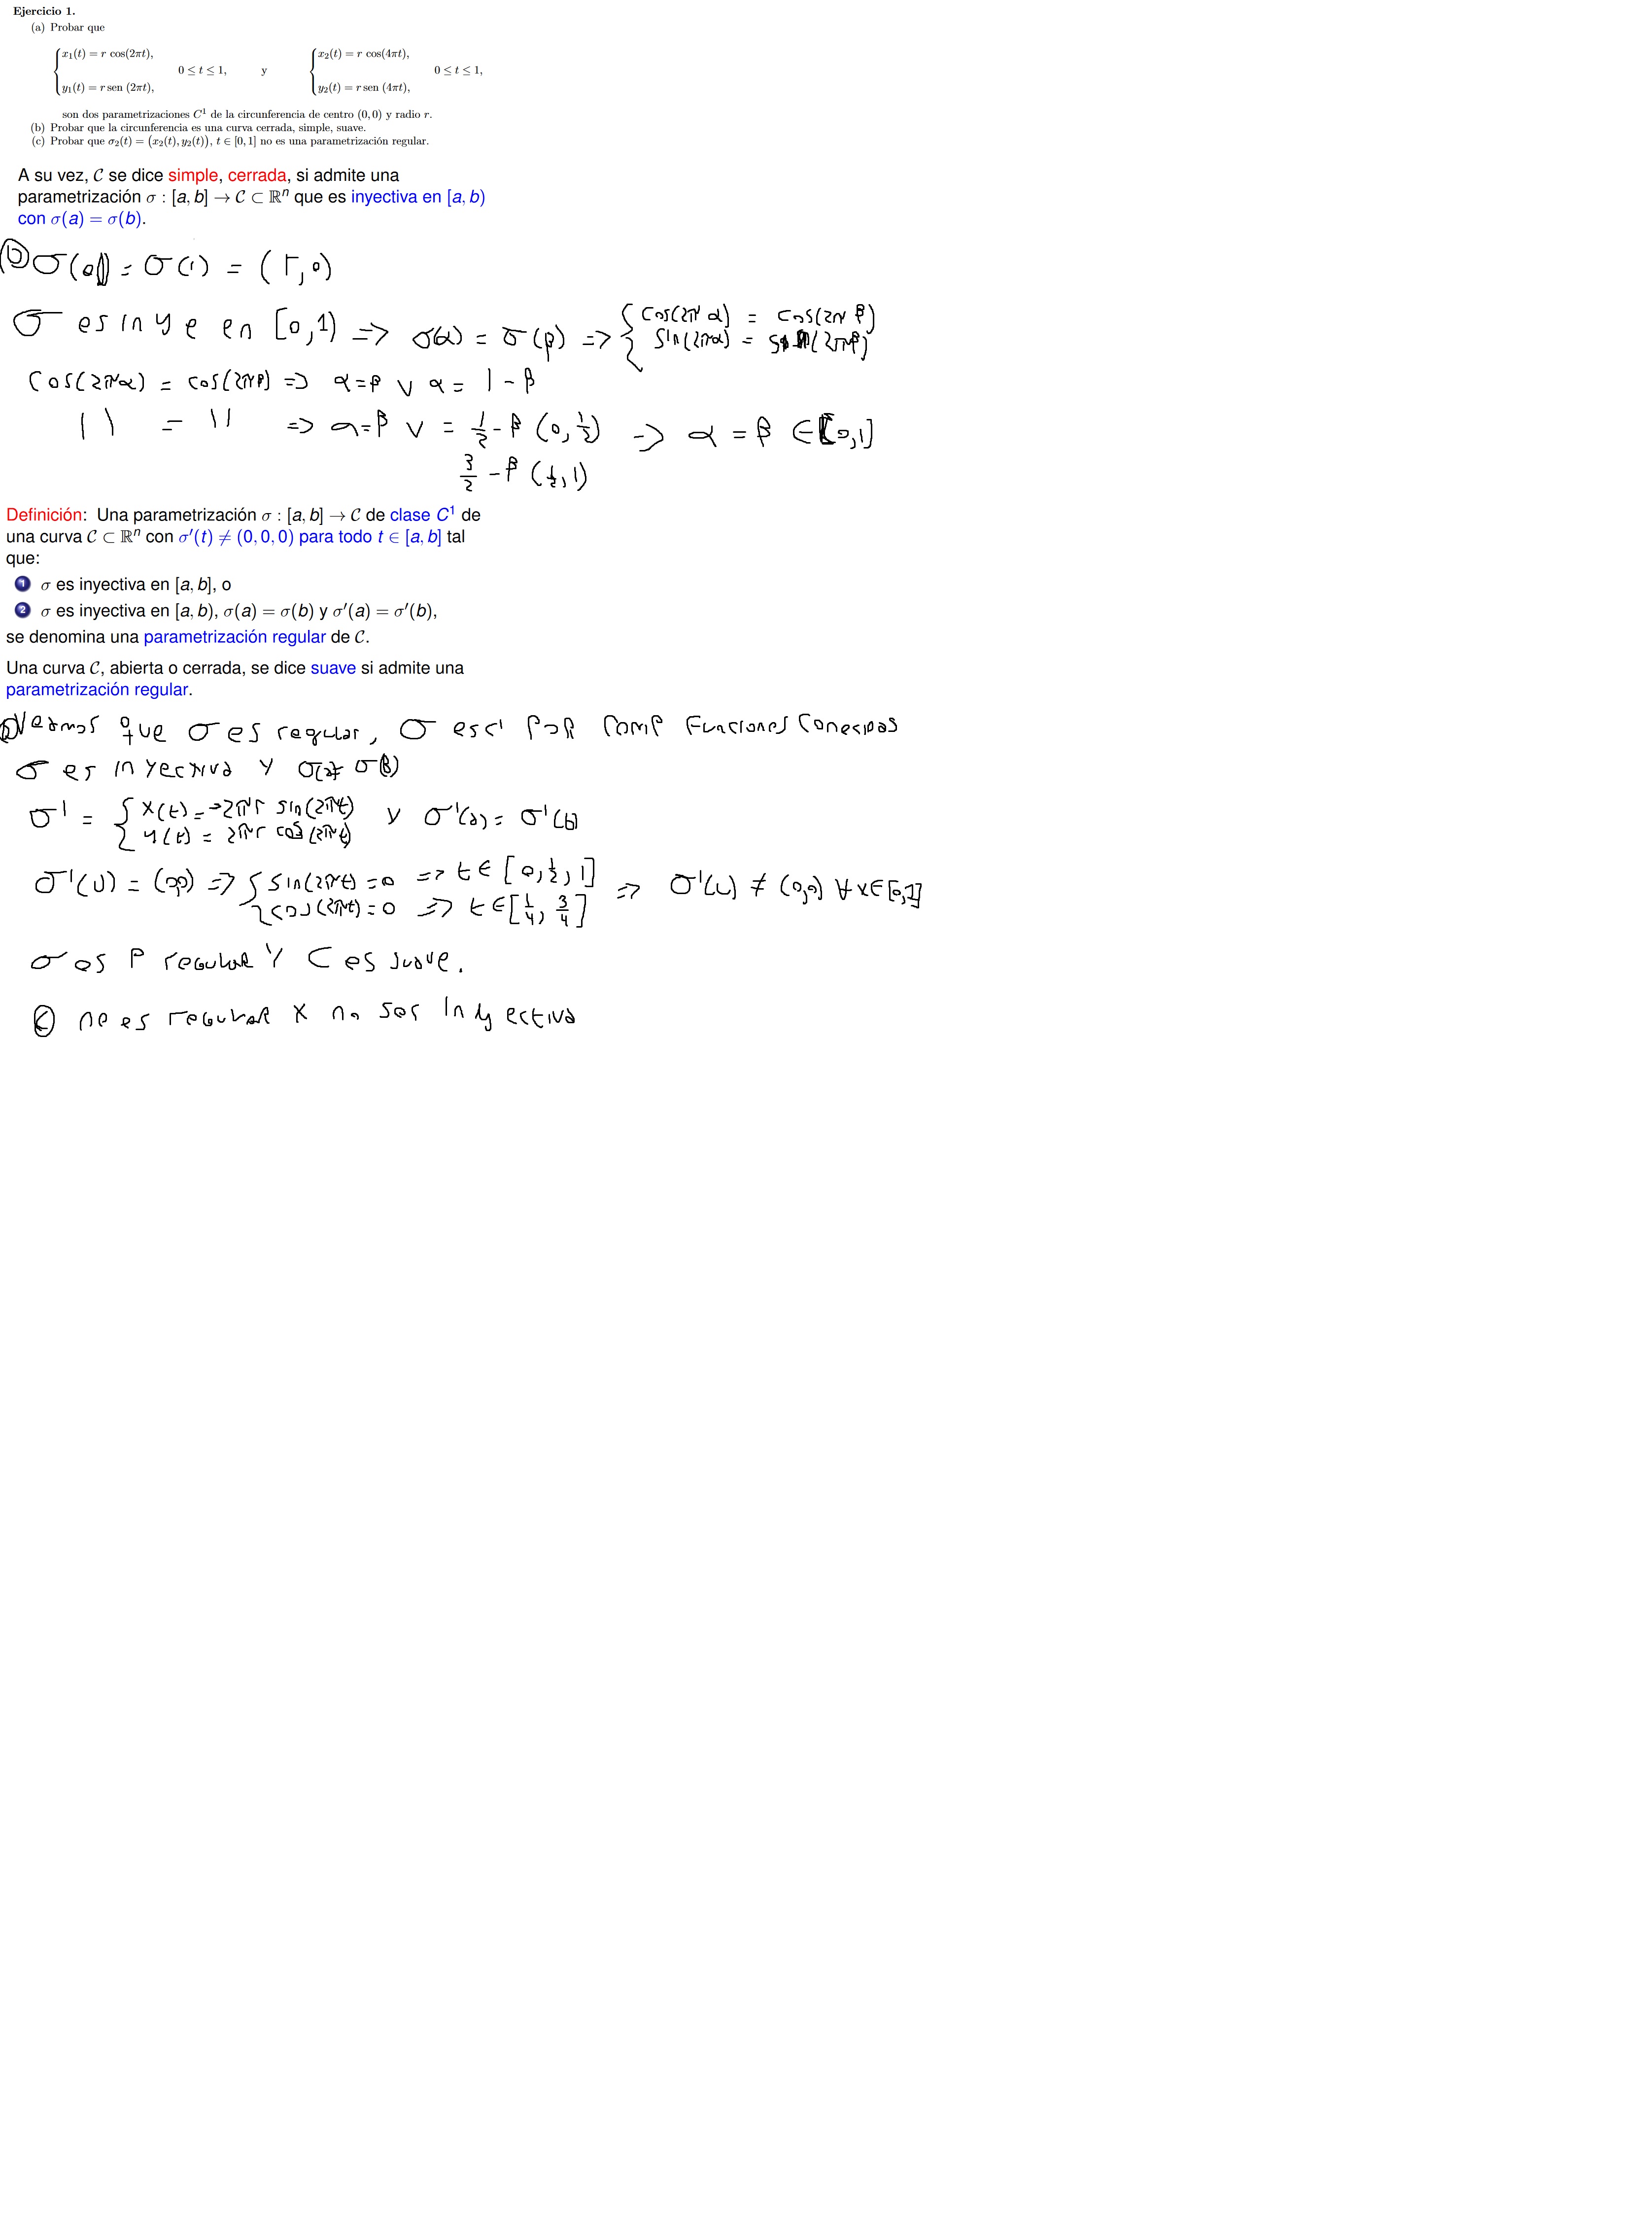 Ejercicio 1.
(a) Probar que
{ x₁(t) = r cos(2πt), y₁(t) = r sen (2πt), 0 ≤ t ≤ 1, y { x₂(t) = r cos(4πt), y₂(t) = r sen (4πt), 0 ≤ t ≤ 1,
son dos parametrizaciones C¹ de la circunferencia de centro (0, 0) y radio r.
(b) Probar que la circunferencia es una curva cerrada, simple, suave.
(c) Probar que σ₂(t) = (x₂(t), y₂(t)), t ∈ [0, 1] no es una parametrización regular.
A su vez, 𝒞 se dice simple, cerrada, si admite una
parametrización σ : [a, b] → 𝒞 ⊂ ℝⁿ que es inyectiva en [a, b)
con σ(a) = σ(b).
ⓑ σ(0) = σ(1) = (r, 0)
σ es inye en [0, 1) => σ(α) = σ(β) => { cos(2πα) = cos(2πβ)
sin(2πα) = sin(2πβ)
cos(2πα) = cos(2πβ) => α=β ∨ α = 1 - β
11 = 11 => α=β ∨ = 1/2 - β (0, 1/2) -> α = β ∈ [0,1]
3/2 - β (1/2, 1)
Definición: Una parametrización σ : [a, b] → 𝒞 de clase C¹ de
una curva 𝒞 ⊂ ℝⁿ con σ′(t) ≠ (0, 0, 0) para todo t ∈ [a, b] tal
que:
1 σ es inyectiva en [a, b], o
2 σ es inyectiva en [a, b), σ(a) = σ(b) y σ′(a) = σ′(b),
se denomina una parametrización regular de 𝒞.
Una curva 𝒞, abierta o cerrada, se dice suave si admite una
parametrización regular.
Veamos que σ es regular, σ es c¹ por comp funciones conocidas
σ es inyectiva y σ(a) = σ(b)
σ' = { x(t) = -2πr sin(2πt)
y(t) = 2πr cos(2πt) y σ'(a) = σ'(b)
σ'(u) = (0,0) => { sin(2πt) = 0 => t ∈ [0, 1/2, 1]
cos(2πt) = 0 => t ∈ [1/4, 3/4] => σ'(u) ≠ (0,0) ∀x∈[0,1]
σ es P regular y C es suave.
ⓒ no es regular x no ser inyectiva